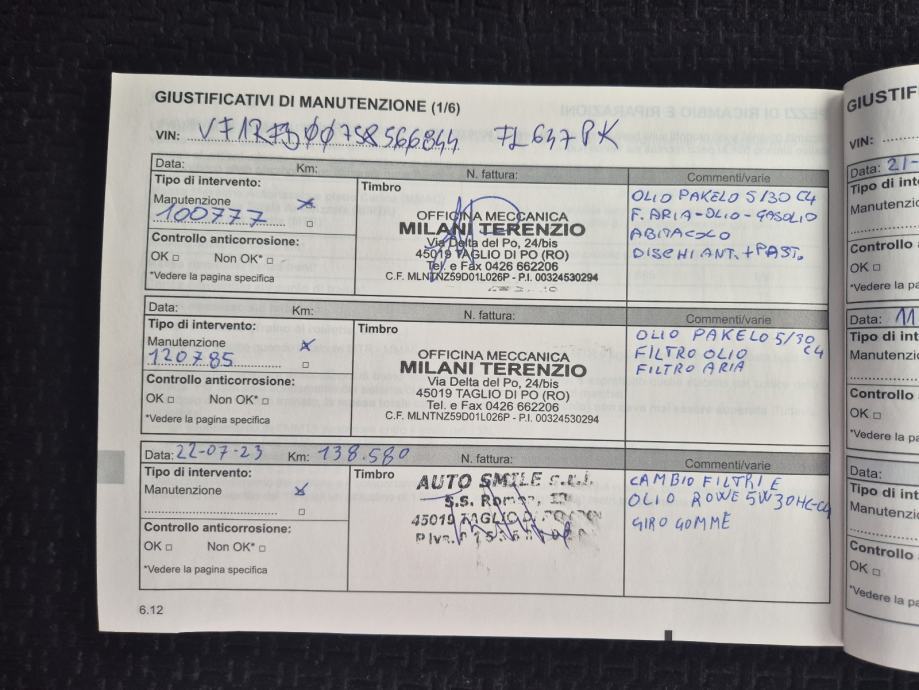 GIUSTIFICATIVI DI MANUTENZIONE (1/6)
VIN: VF1RFB00758566844 FL647PK
Data: Km: N. fattura: Commenti/varie
Tipo di intervento:
Manutenzione
100777
Controllo anticorrosione:
OK Non OK*
*Vedere la pagina specifica
Timbro
OFFICINA MECCANICA
MILANI TERENZIO
Via Delta del Po, 24/bis
45019 TAGLIO DI PO (RO)
Tel. e Fax 0426 662206
C.F. MLNTNZ59D01L026P - P.I. 00324530294
OLIO PAKELO 5/30 C4
F. ARIA-OLIO-GASOLIO
ABITACOLO
DISCHI ANT. + PAST.
Data: Km: N. fattura: Commenti/varie
Tipo di intervento:
Manutenzione
120785
Controllo anticorrosione:
OK Non OK*
*Vedere la pagina specifica
Timbro
OFFICINA MECCANICA
MILANI TERENZIO
Via Delta del Po, 24/bis
45019 TAGLIO DI PO (RO)
Tel. e Fax 0426 662206
C.F. MLNTNZ59D01L026P - P.I. 00324530294
OLIO PAKELO 5/30 C4
FILTRO OLIO
FILTRO ARIA
Data: 22-07-23 Km: 138.580 N. fattura: Commenti/varie
Tipo di intervento:
Manutenzione
Controllo anticorrosione:
OK Non OK*
*Vedere la pagina specifica
Timbro
AUTO SMILE S.R.L.
S.S. Romea,
45019 TAGLIO DI PO
P.Iva
CAMBIO FILTRI E
OLIO ROWE 5W30HC-C4
GIRO GOMME
6.12
GIUSTIF
VIN:
Data: 21-
Tipo di int
Manutenzio
Controllo
OK
*Vedere la pa
Data: 11
Tipo di int
Manutenzio
Controllo
OK
*Vedere la pa
Data:
Tipo di int
Manutenzio
Controllo
OK
*Vedere la pa